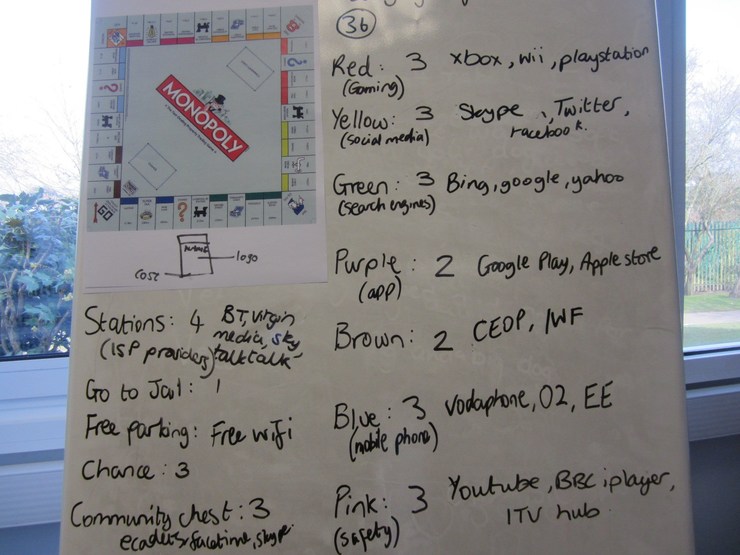 3b
MONOPOLY
GO
name
logo
cost
Red: 3 xbox, wii, playstation
(Gaming)
Yellow: 3 Skype, Twitter,
(social media) facebook.
Green: 3 Bing, google, yahoo
(search engines)
Purple: 2 Google Play, Apple store
(app)
Brown: 2 CEOP, IWF
Blue: 3 Vodaphone, O2, EE
(mobile phone)
Pink: 3 Youtube, BBC iplayer,
(safety) ITV hub
Stations: 4 BT, Virgin
(ISP providers) media, sky
talktalk
Go to Jail: 1
Free parking: Free wifi
Chance: 3
Community chest: 3
facetime, skype